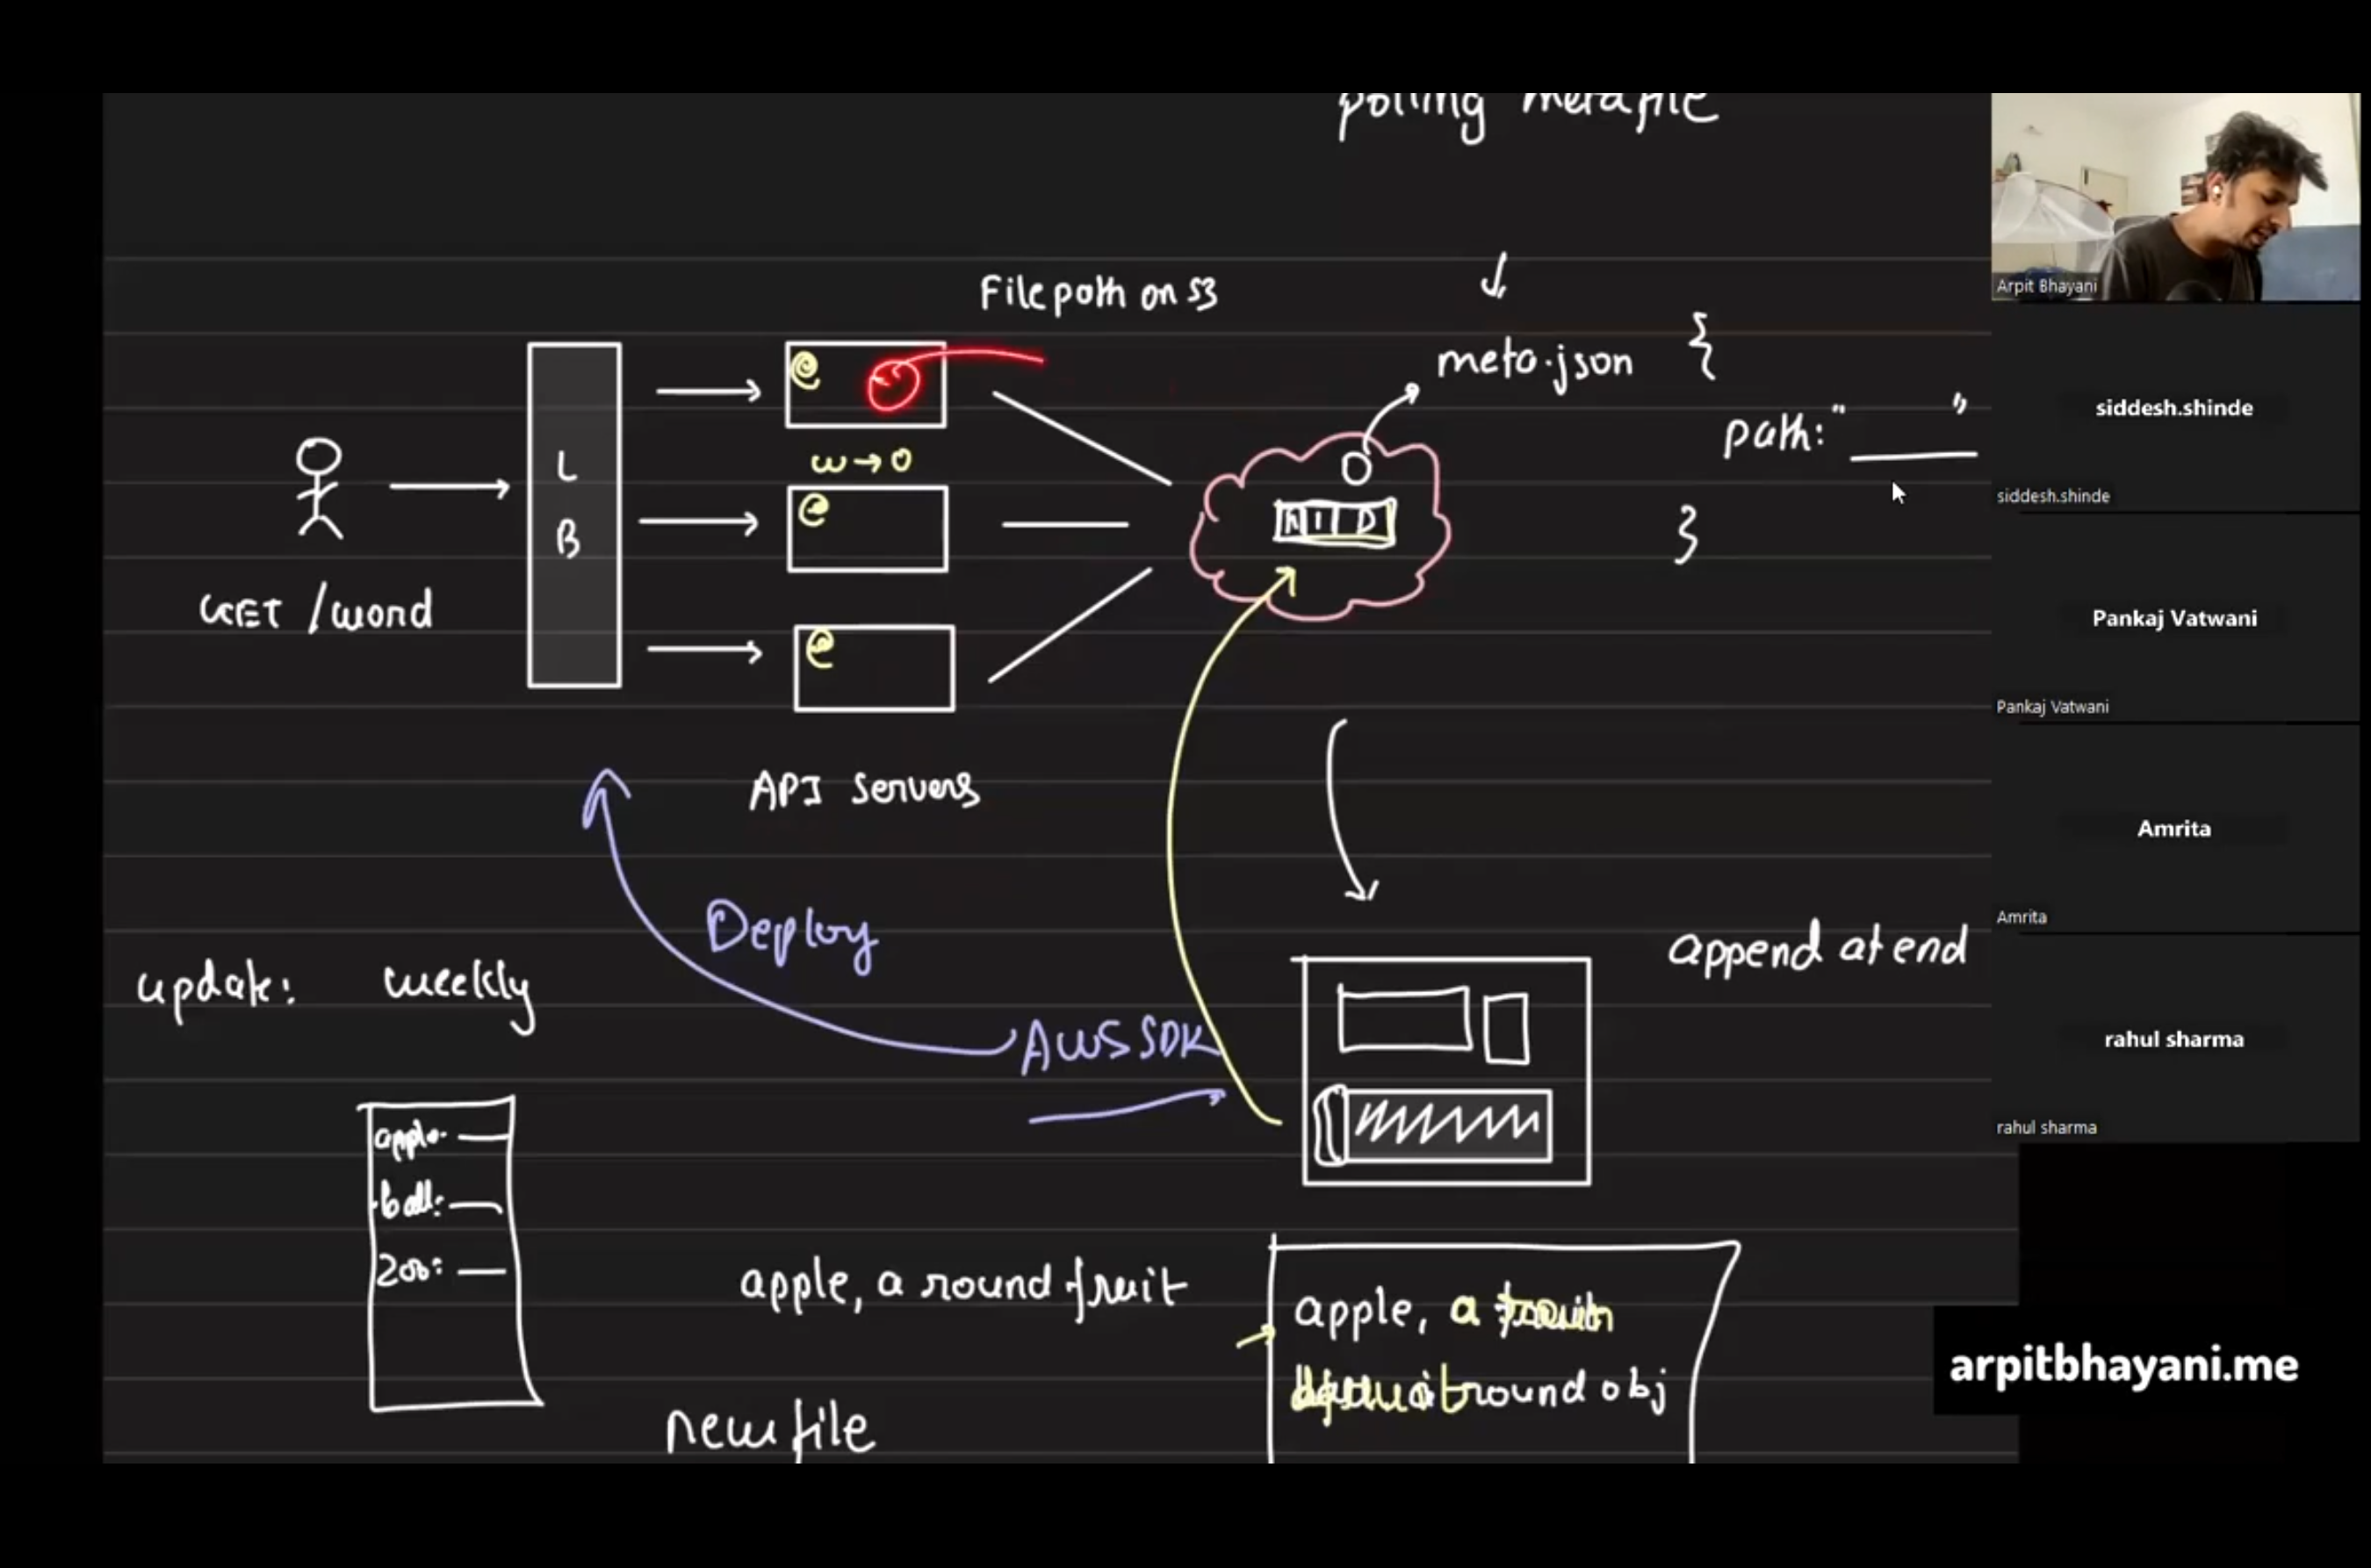 polling metafile
File path on S3
meta.json {
path: "____"
}
L
B
w → 0
GET /word
API Servers
Deploy
AWS SDK
update: weekly
append at end
apple: —
ball: —
zoo: —
apple, a round fruit
apple, a
round obj
new file
Arpit Bhayani
siddesh.shinde
siddesh.shinde
Pankaj Vatwani
Pankaj Vatwani
Amrita
Amrita
rahul sharma
rahul sharma
arpitbhayani.me